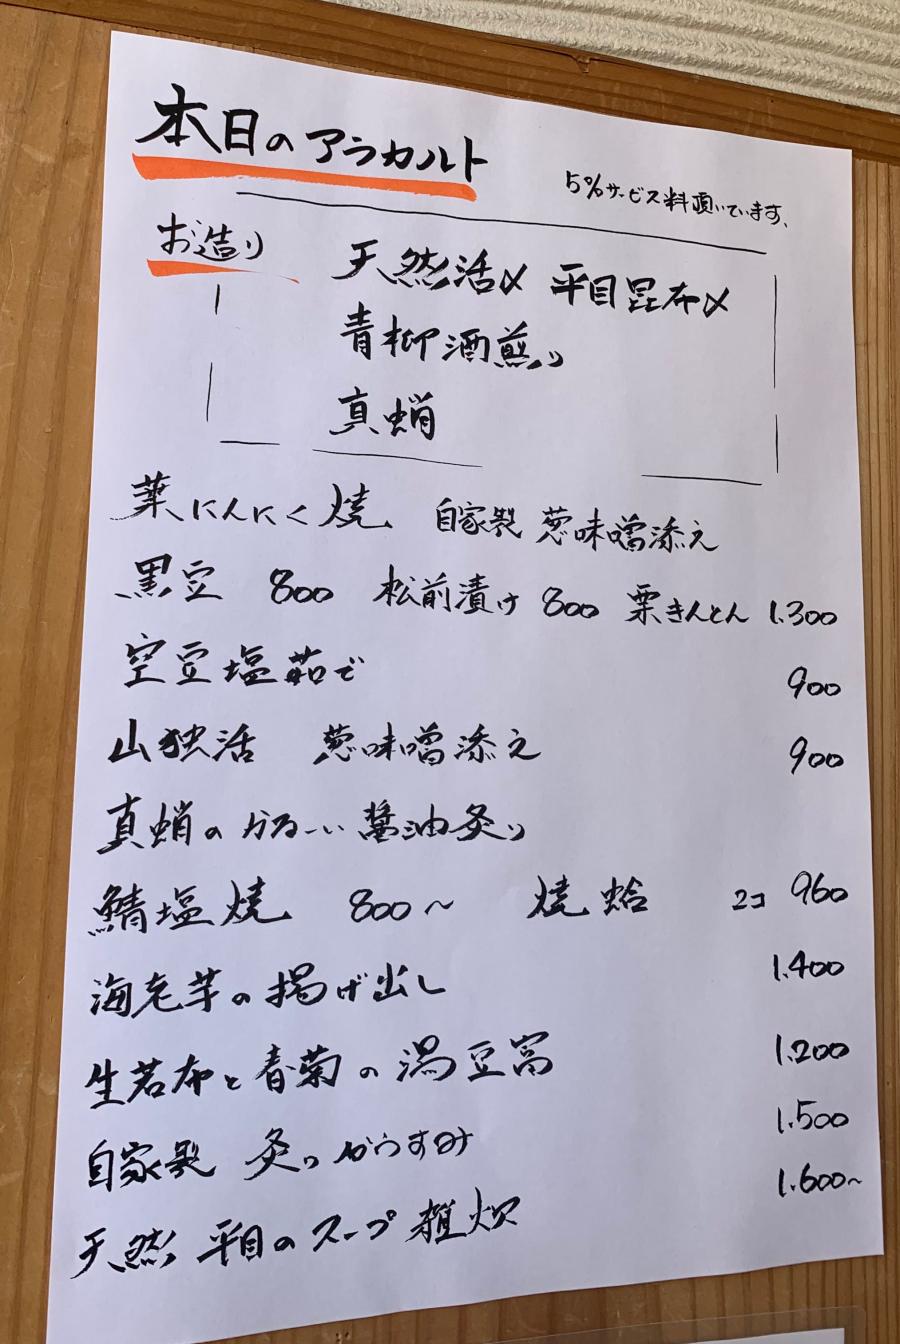 本日のアラカルト
5%サービス料頂いています、
お造り
天然活〆 平目昆布〆
青柳酒煎り
真蛸
葉にんにく焼 自家製 葱味噌添え
黒豆 800 松前漬け 800 栗きんとん 1.300
空豆塩茹で 900
山独活 葱味噌添え 900
真蛸のかる〜い醤油灸り
鯖塩焼 800〜 焼蛤 2コ 960
海老芋の揚げ出し 1.400
生若布と春菊の湯豆富 1.200
自家製 灸りからすみ 1.500
天然 平目のスープ雑炊 1.600〜